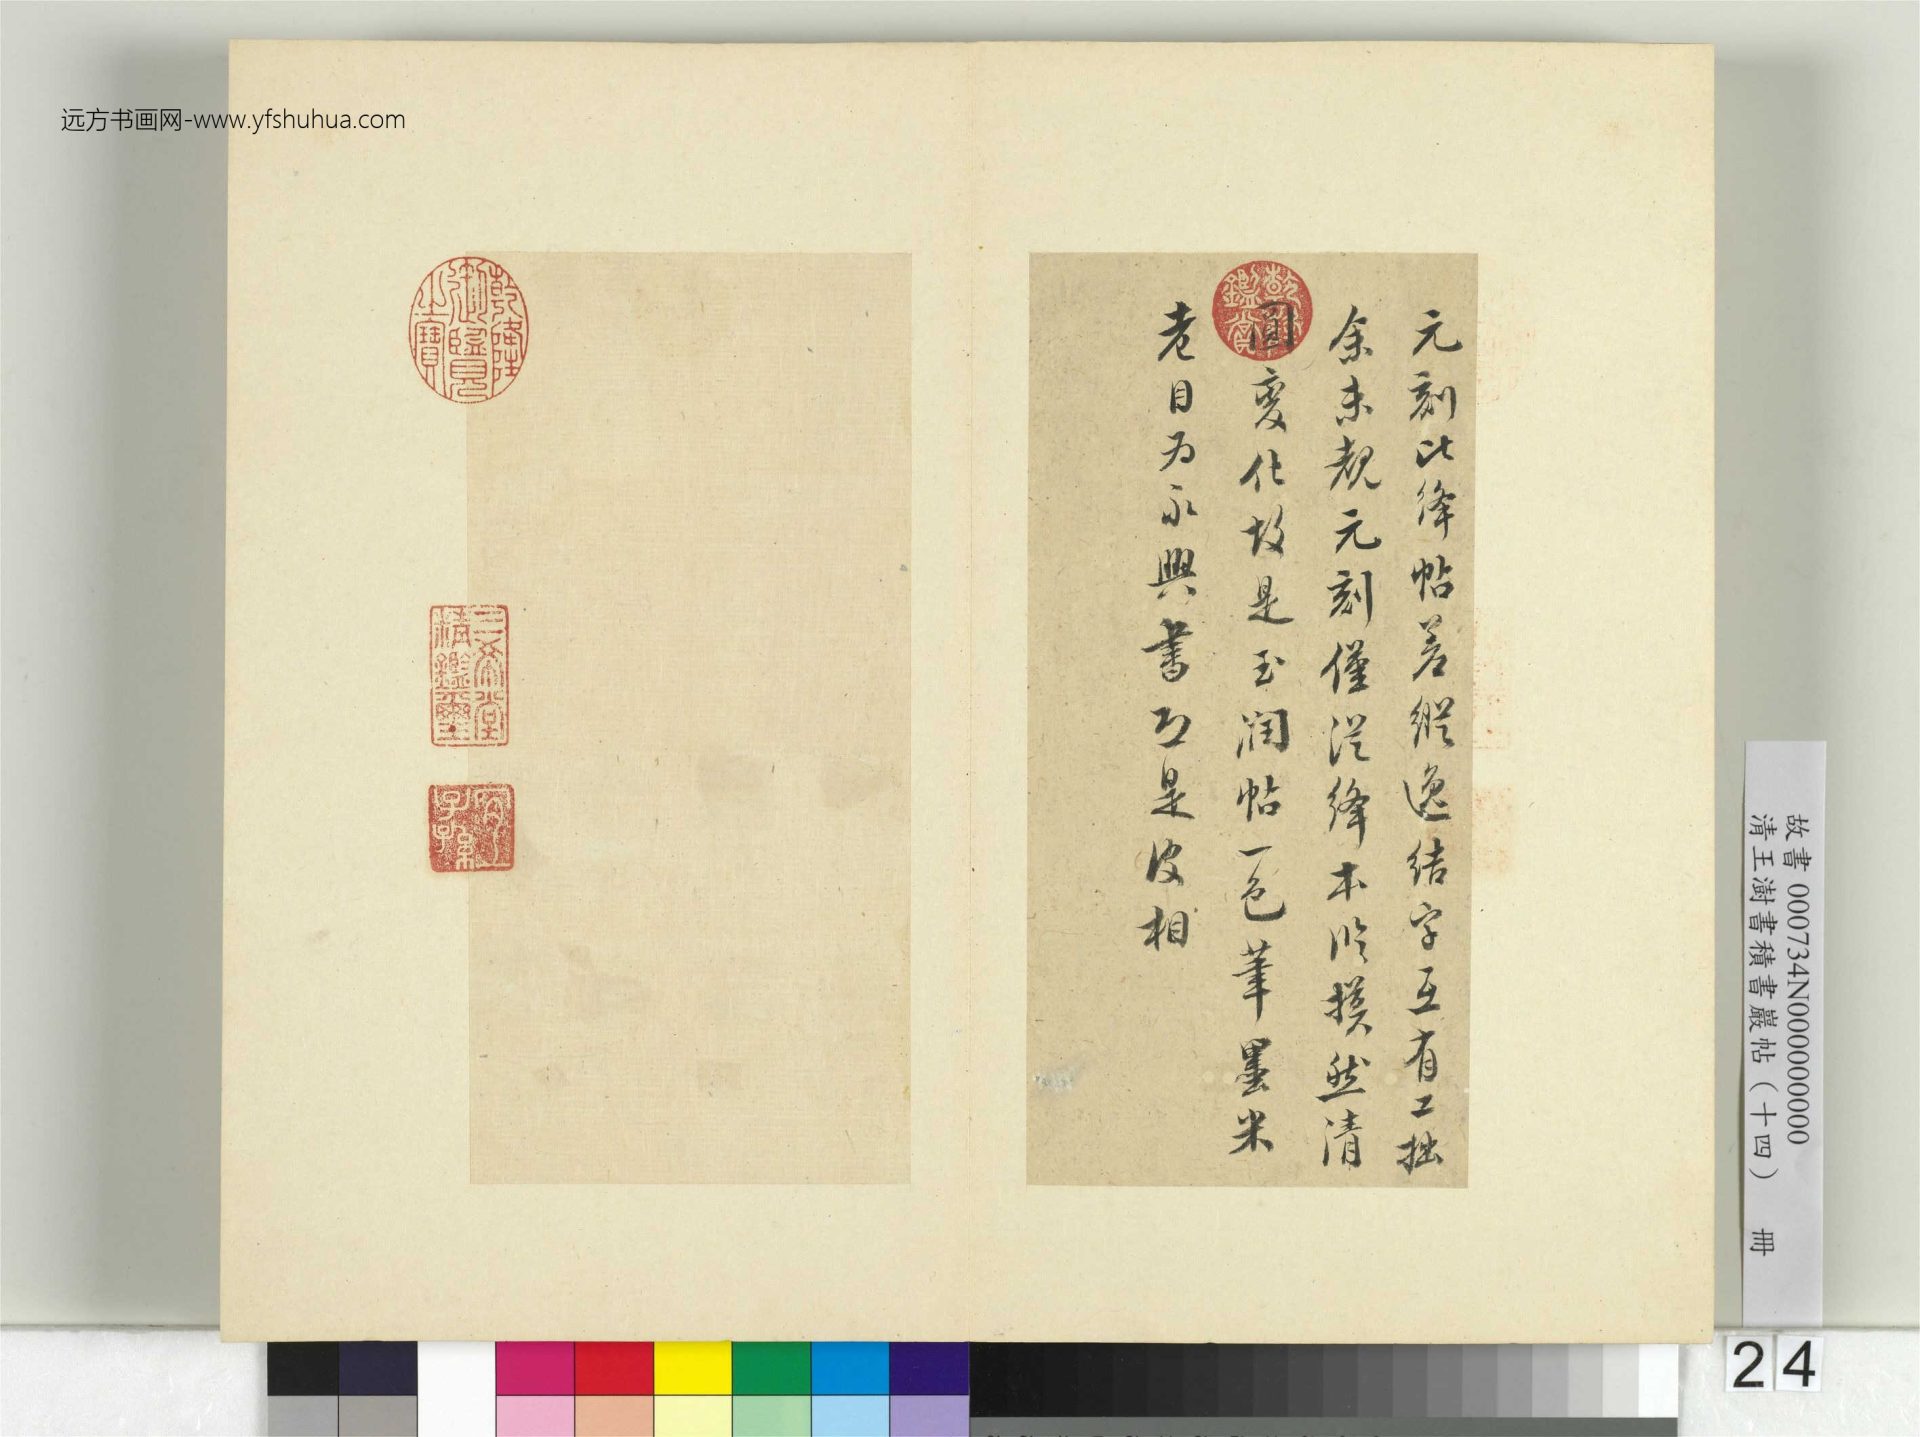 远方书画网-www.yfshuhua.com
元刻比絳帖差縱逸結字互有工拙
余未覩元刻僅從絳本臨摸然清
圓變化故是玉潤帖一色筆墨米
老目為永興書乃是皮相
乾隆鑑賞
乾隆御覽之寶
三希堂精鑑璽
宜子孫
故書 000734N000000000
清王澍書積書巖帖（十四） 冊
24